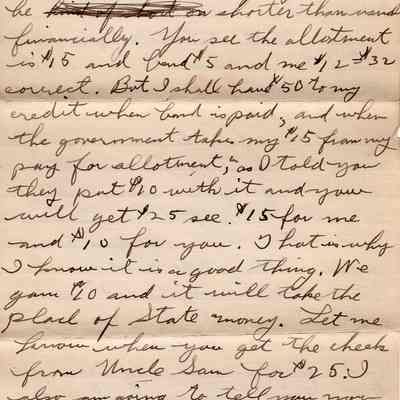 be kind of hard on shorter than usual
financially. You see the allotment
is $15 and bond $5 and me $12 = $32
correct. But I shall have $50 to my
credit when bond is paid, and when
the government takes my $15 from my
pay for allotment, as I told you
they put $10 with it and your
will get $25 see. $15 for me
and $10 for you. That is why
I know it is a good thing. We
gain $10 and it will take the
place of State money. Let me
know when you get the check
from Uncle Sam for $25. I
also am going to tell you now